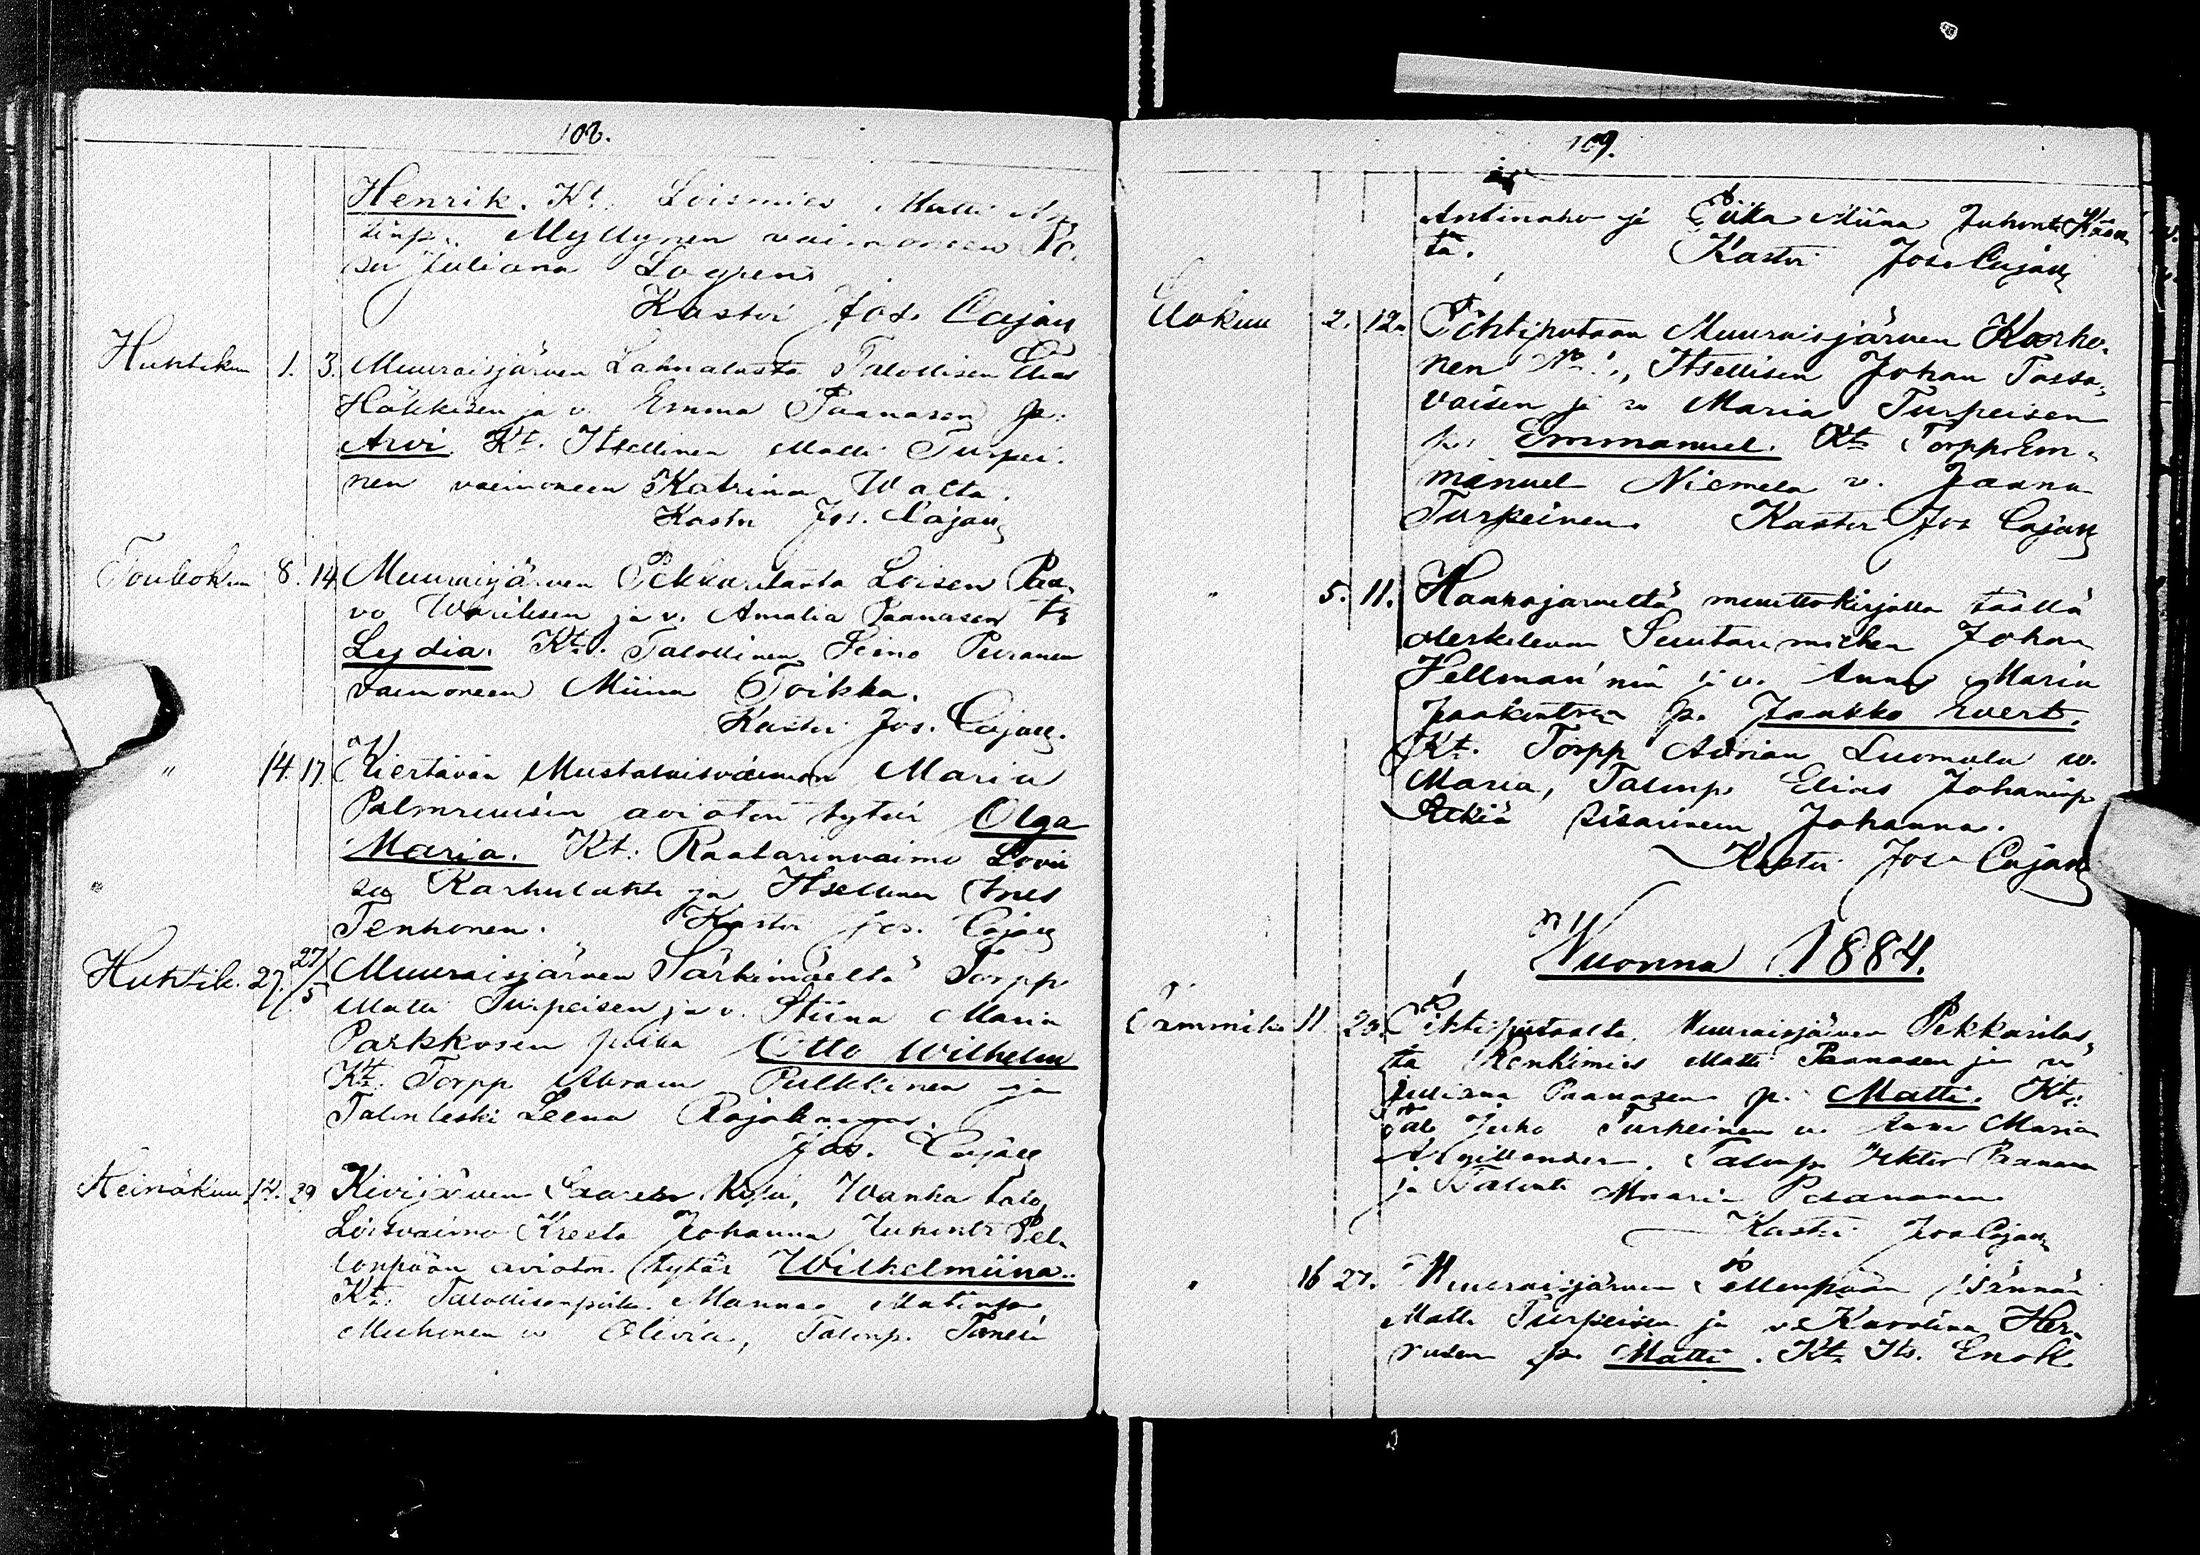 108.
Henrik. Kt. Loismies Matti An-
tinp. Myllynen vaimoneen Ro-
sa Juliana Lagren
Kastoi Jos. Cajan
Huhtikuu 1. 3. Muuraisjärven Lahnalasta Talollisen Elias
Häkkisen ja v. Emma Paanasen p.
Arvi Kt. Itsellinen Matti Turpei-
nen vaimoneen Katrina Walta.
Kastoi Jos. Cajan
Toukokuu 8. 14. Muuraisjärven Pekkarilasta Loisen Paa-
vo Warilsen ja v. Amalia Paanasen t.
Lydia. Kt. Talollinen Heino Piiranen
vaimoneen Miina Toikka.
Kastoi Jos. Cajan.
" 14. 17. Kiertävän Mustalaisvaimon Maria
Palmreuisin avioton tytär Olga
Maria. Kt. Raatarinvaimo Lovii
sa Karhulahti ja Itsellinen
Tenhonen. Kastoi Jos. Cajan
Huhtik. 27. 27/5 Muuraisjärven Särkimäeltä Torpp.
Matti Turpeisen ja v. Stiina Maria
Parkkosen poika Otto Wilhelm
Kt. Torpp Abram Pulkkinen ja
Talon leski Leena
Jos. Cajan
Heinäkuu 14. 29 Kivijärven Saaren kylä, Wanha talo,
Loisvaimo Kreeta Johanna Juhont. Pel-
lonpään avioton tytär Wilhelmiina.
Kt. Talollisenpoika Mannas Matinp.
Muhonen v. Olivia, Talonp. Taneli
109.
Antinaho ja Piika Miina Juhont.
ta. Kastoi Jos. Cajan
Elokuu 2. 12. Pihtiputaan Muuraisjärven Korho-
nen No 1, Itsellisen Johan Tossa-
vaisen ja v. Maria Turpeisen
p. Emmanuel. Kt. Torpp. Em-
manuel Niemela v. Jaana
Turpeinen. Kastoi Jos Cajan
" 5. 11. Haapajärveltä muuttokirjalla täällä
oleskelevan Suutari miehen Johan
Hellman'nin ja v. Anna Maria
Jaakontr. p. Jaakko Evert.
Kt. Torpp Adrian Luomala v.
Maria, Talonp. Elias Johaninp.
sisarineen Johanna.
Kastoi Jos. Cajan
Vuonna 1884.
Tammikuu 11 20. Pihtiputaalta, Muuraisjärven Pekkarilas-
ta Renkimies Matti Paanasen ja v.
Juliana Paanasen p. Matti. Kt.
Tal Juho Turpeinen v. Anna Maria
Talonp. Viktor Paananen
ja Talont. Maaria Paananen
Kastoi Jos Cajan
" 16 27. Muuraisjärven Pellonpään isännän
Matti Turpeisen ja v. Karolina Her-
rasen p. Matti. Kt. Its. Enok